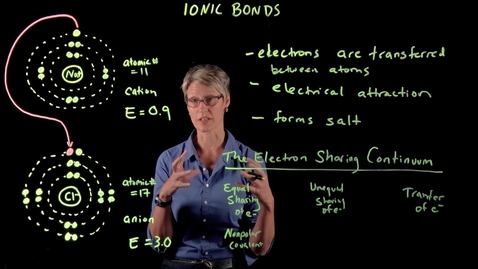 IONIC BONDS
Na+
atomic #
= 11
Cation
E = 0.9
- electrons are transferred
between atoms
- electrical attraction
- forms salt
Cl-
atomic #
= 17
anion
E = 3.0
The Electron Sharing Continuum
Equal
Sharing
of e-
Nonpolar
Covalent
Unequal
Sharing
of e-
Transfer
of e-